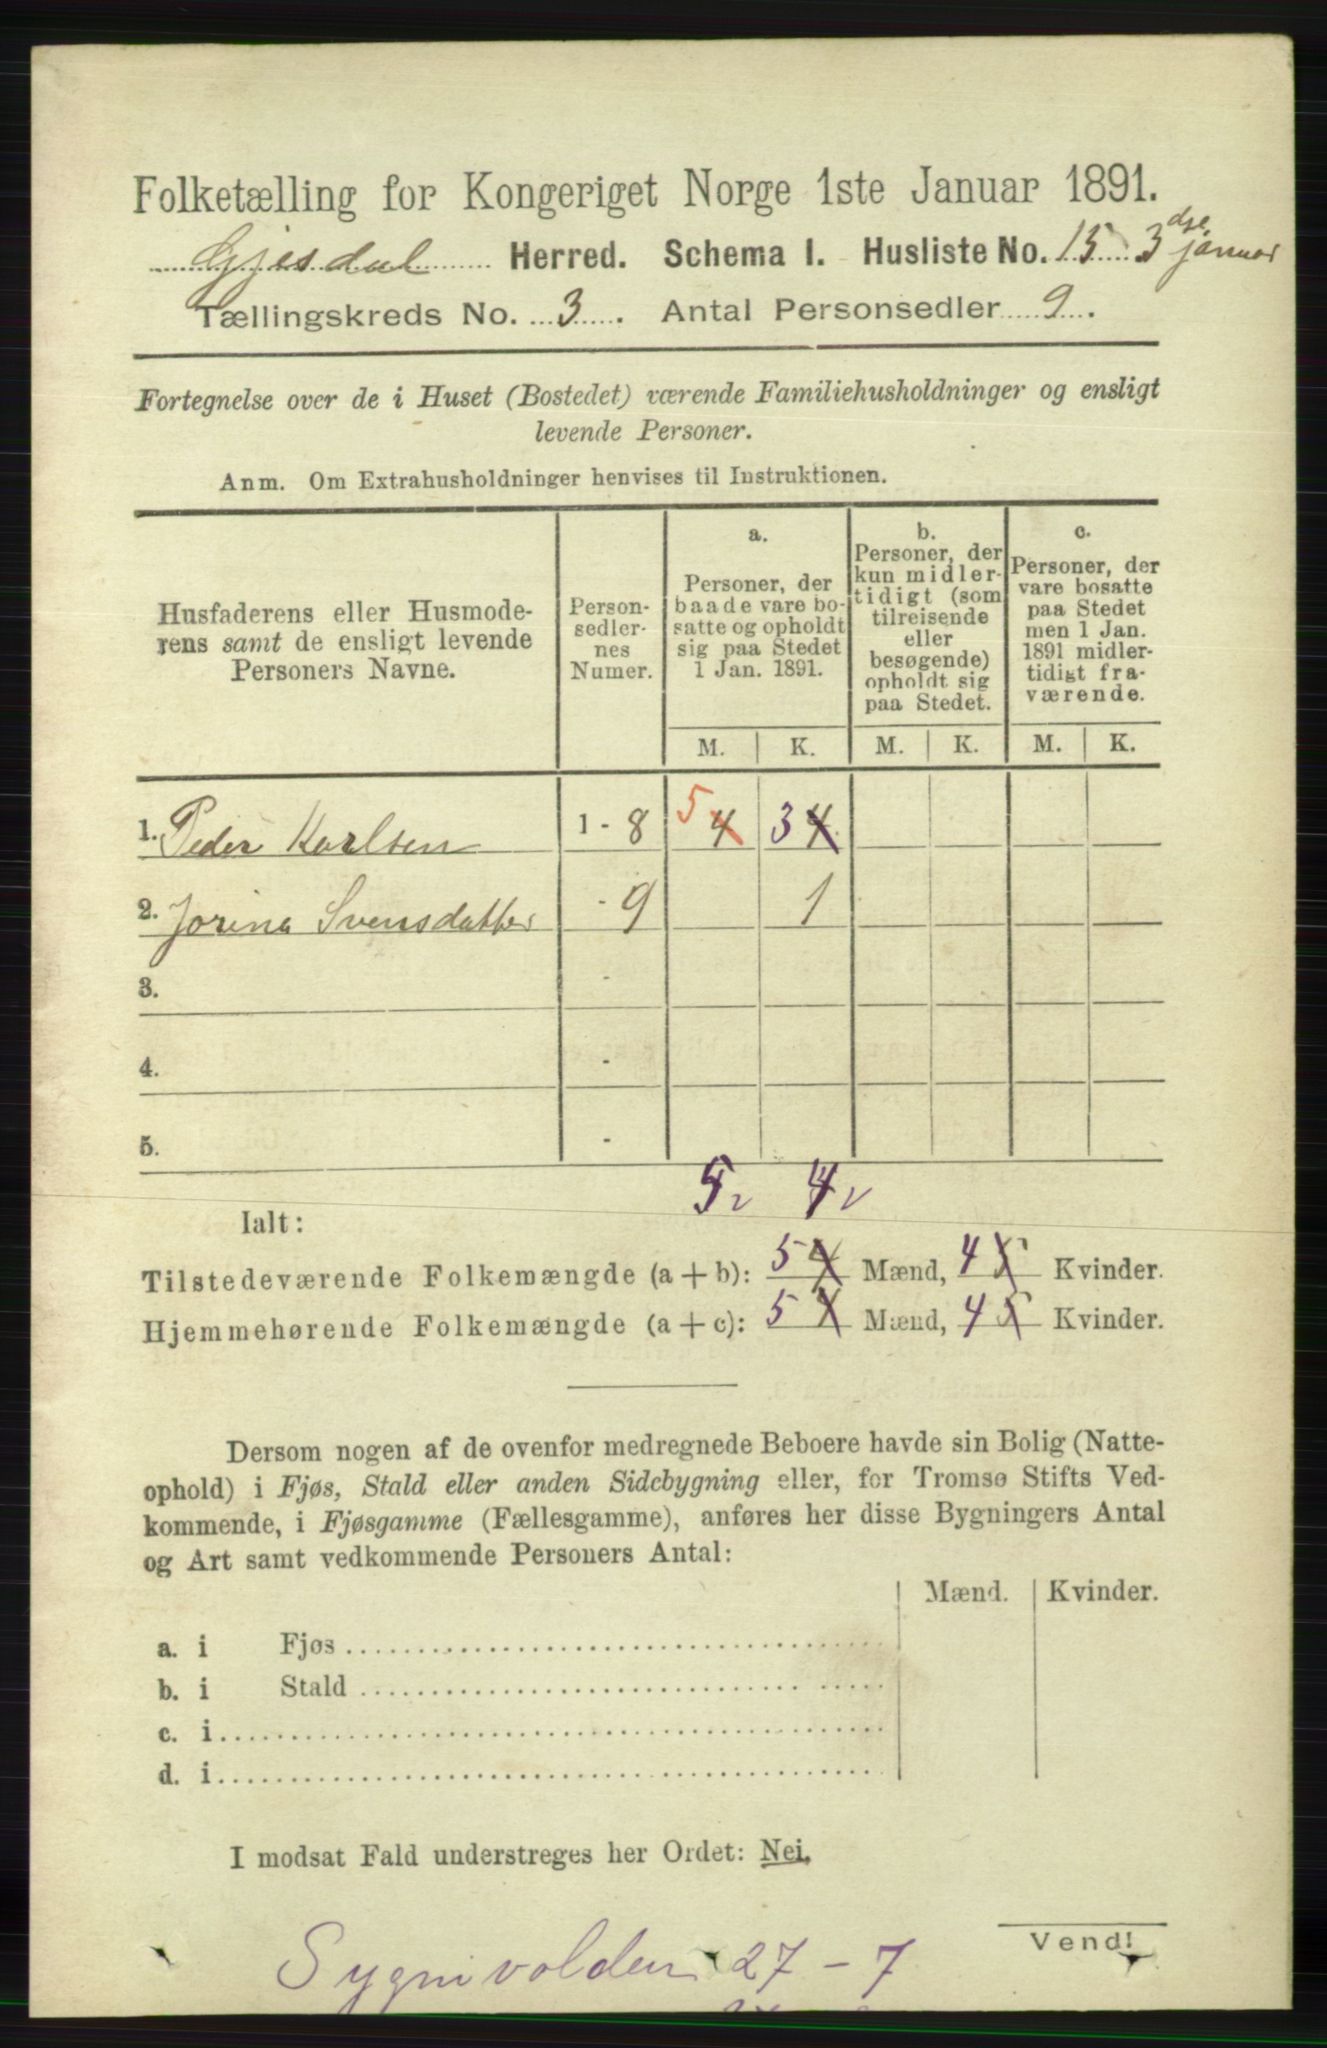 Folketælling for Kongeriget Norge 1ste Januar 1891.
Gjesdal Herred. Schema I. Husliste No. 15 3dje januar
Tællingskreds No. 3. Antal Personsedler 9.
Fortegnelse over de i Huset (Bostedet) værende Familiehusholdninger og ensligt
levende Personer.
Anm. Om Extrahusholdninger henvises til Instruktionen.
Husfaderens eller Husmode-
rens samt de ensligt levende
Personers Navne.
Person-
sedler-
nes
Numer.
a.
Personer, der
baade vare bo-
satte og opholdt
sig paa Stedet
1 Jan. 1891.
b.
Personer, der
kun midler-
tidigt (som
tilreisende
eller
besøgende)
opholdt sig
paa Stedet.
c.
Personer, der
vare bosatte
paa Stedet
men 1 Jan.
1891 midler-
tidigt fra-
værende.
M. K. M. K. M. K.
1. Peder Karlsen 1 - 8 5 4 3 4
2. Jorina Svensdatter - 9 1
3. -
4. -
5. -
5 4
Ialt:
Tilstedeværende Folkemængde (a + b): 5 4 Mænd, 4 5 Kvinder.
Hjemmehørende Folkemængde (a + c): 5 4 Mænd, 4 5 Kvinder.
Dersom nogen af de ovenfor medregnede Beboere havde sin Bolig (Natte-
ophold) i Fjøs, Stald eller anden Sidebygning eller, for Tromsø Stifts Ved-
kommende, i Fjøsgamme (Fællesgamme), anføres her disse Bygningers Antal
og Art samt vedkommende Personers Antal:
Mænd. Kvinder.
a. i Fjøs
b. i Stald
c. i
d. i
I modsat Fald understreges her Ordet: Nei.
Vend!
Sygnivolden 27 - 7